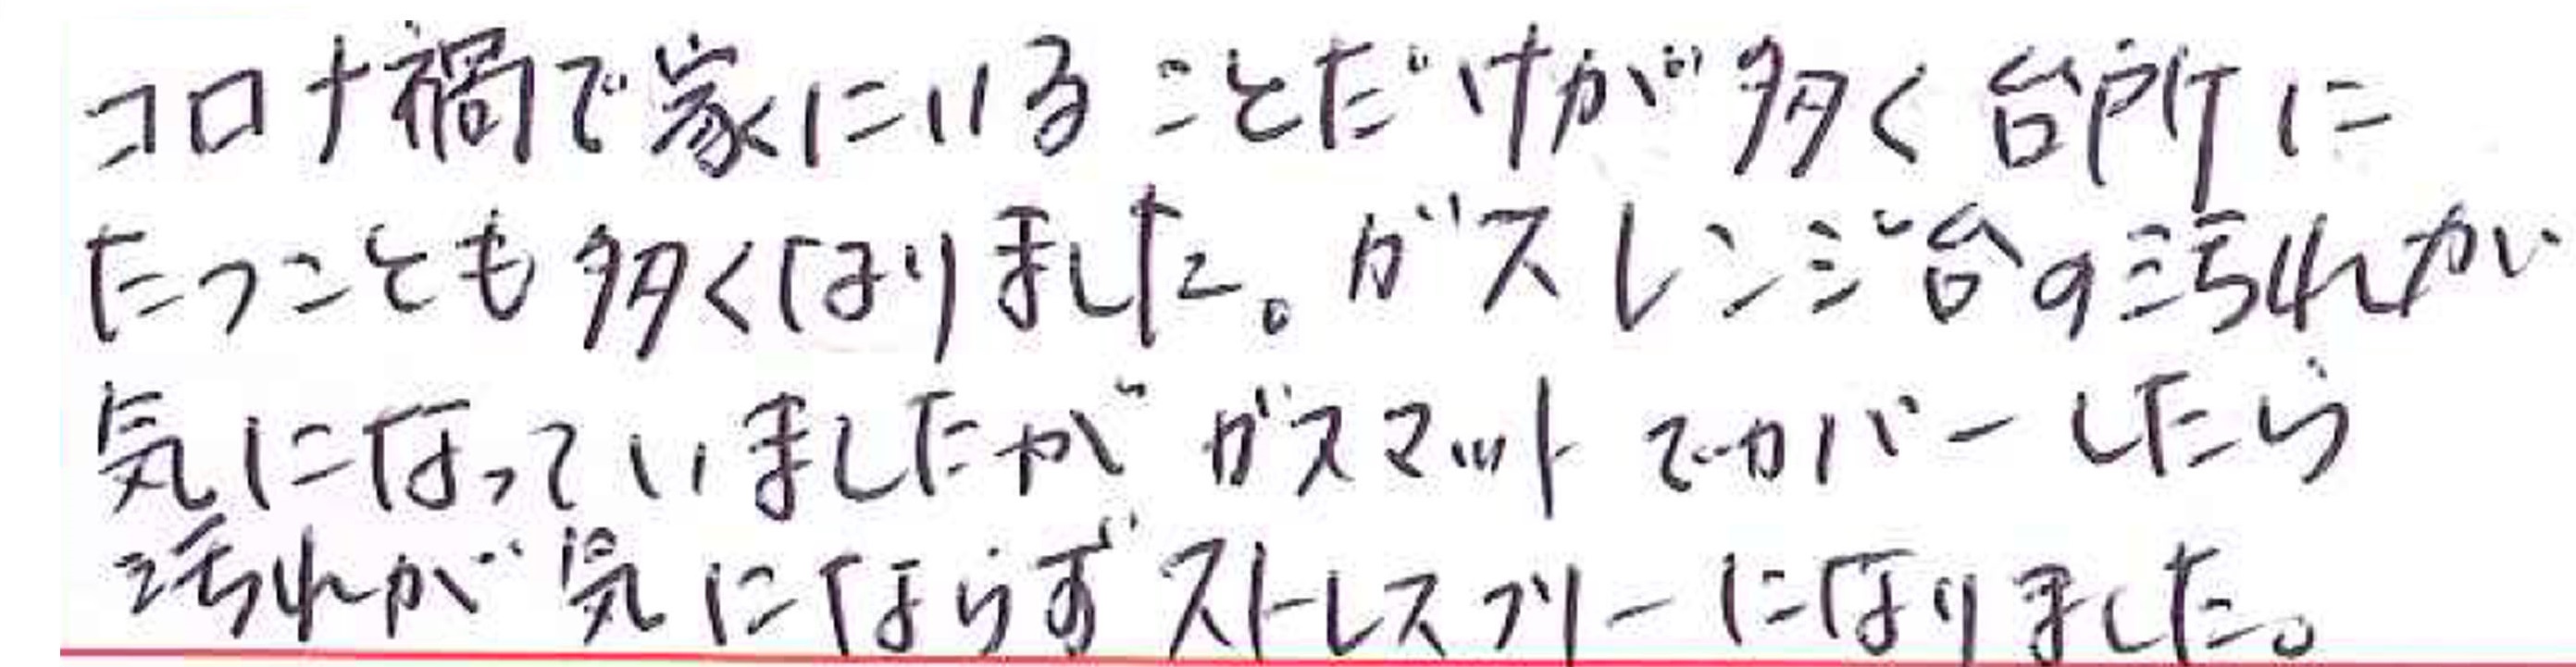 コロナ禍で家にいることだけが多く台所に
たつことも多くなりました。ガスレンジ台の汚れが
気になっていましたがガスマットでカバーしたら
汚れが気にならずストレスフリーになりました。